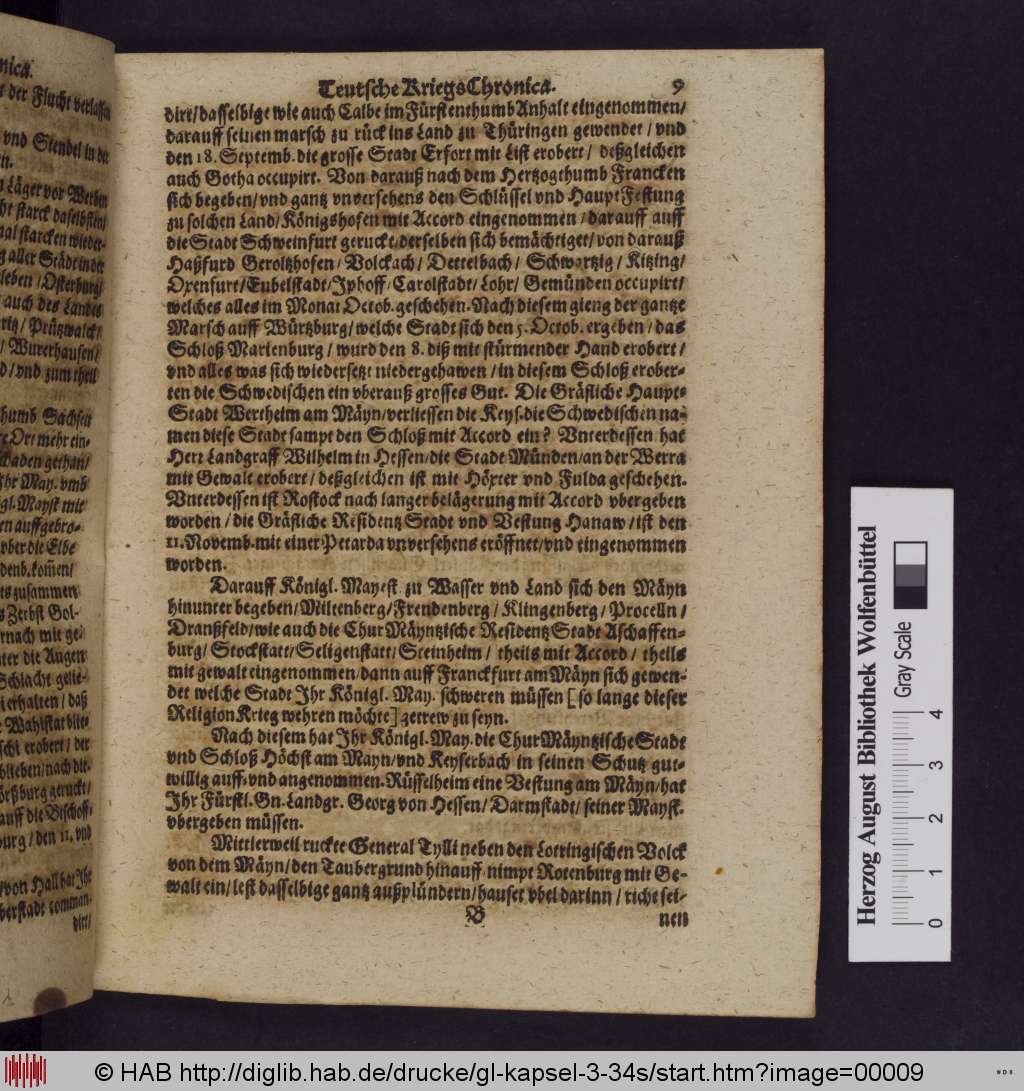 Teutsche KriegsChronica. 9
dirt/dasselbige wie auch Calbe im Fürstenthumb Anhalt eingenommen/
darauff seinen marsch zu rück ins Land zu Thüringen gewendet / vnd
den 18. Septemb. die grosse Stadt Erfort mit List erobert / deßgleichen
auch Gotha occupirt. Von darauß nach dem Hertzogthumb Francken
sich begeben/vnd gantz vnversehens den Schlüssel vnd HauptFestung
zu solchen Land/Königshofen mit Accord eingenommen / darauff auff
die Stadt Schweinfurt geruckt/derselben sich bemächtiget/von darauß
Haßfurd Geroltzhofen / Volckach / Dettelbach / Schwartzig / Kitzing/
Oxenfurt/Eubelstadt/Jphoff/Carolstadt/Lohr/ Gemünden occupirt/
welches alles im Monat Octob. geschehen. Nach diesem gieng der gantze
Marsch auff Würtzburg/welche Stadt sich den 5. Octob. ergeben / das
Schloß Marienburg / wurd den 8. diß mit stürmender Hand erobert /
vnd alles was sich wiedersetzt niedergehawen / in diesem Schloß erober-
ten die Schwedischen ein vberauß grosses Gut. Die Gräfliche Haupt-
Stadt Wertheim am Mäyn/verliessen die Keys. die Schwedischen na-
men diese Stadt sampt den Schloß mit Accord ein? Vnterdessen hat
Herr Landgraff Wilhelm in Hessen/die Stadt Münden/an der Werra
mit Gewalt erobert / deßgleichen ist mit Höxter vnd Fulda geschehen.
Vnterdessen ist Rostock nach langer belägerung mit Accord vbergeben
worden / die Gräfliche Residentz Stadt vnd Vestung Hanaw/ist den
11. Novemb. mit einer Petarda vnversehens eröffnet/vnd eingenommen
worden.
Darauff Königl. Mayest. zu Wasser vnd Land sich den Mäyn
hinunter begeben/Miltenberg/Freudenberg / Klingenberg / Procelln /
Dranßfeld/wie auch die ChurMäyntzische Residentz Stadt Aschaffen-
burg/ Stockstatt/Seligenstatt/Steinheim / theils mit Accord / theils
mit gewalt eingenommen/dann auff Franckfurt am Mäyn sich gewen-
det welche Stadt Jhr Königl. May. schweren müssen [so lange dieser
Religion Krieg wehren möchte] getrew zu seyn.
Nach diesem hat Jhr Königl. May. die ChurMäyntzische Stadt
vnd Schloß Höchst am Mayn/vnd Keyserbach in seinen Schutz gut-
willig auff- vnd angenommen. Rüsselheim eine Vestung am Mäyn/hat
Jhr Fürstl. Gn. Landgr. Georg von Hessen/ Darmstadt/ seiner Mayst.
vbergeben müssen.
Mittlerweil ruckte General Tylli neben den Lotringischen Volck
von dem Mäyn/den Taubergrund hinauff/nimpt Rotenburg mit Ge-
walt ein/ lest dasselbige gantz außplündern/hauset vbel darinn / richt sei-
B nen
nica.
t der Flucht verlassen
vnd Stendel in der
n.
Läger vor Werben
ht starck daselbsten/
mal starcken wieder-
g aller Städt in der
leben / Osterburg/
auch des Landes
ritz / Prützwalck/
/ Wurerhausen/
d/ vnd zum theil
humb Sachsen
Ort mehr ein-
aden gethan/
Jhr May. vmb
gl. Mayst mit
en auffgebro-
vber die Elbe
denb. kom̃en/
ts zusammen
s Zerbst Gol-
rnach mit ge-
ter die Augen
Schlacht gelie-
erhalten / daß
Wahlstat blie-
scht erobert / der
blieben/nach die-
örßburg geruckt/
auff die Bischoff-
burg / den 11. vnd
/von Hall hat Jhr
berstadt comman-
dirt/
Herzog August Bibliothek Wolfenbüttel
Gray Scale
0 1 2 3 4
© HAB http://diglib.hab.de/drucke/gl-kapsel-3-34s/start.htm?image=00009
WDB